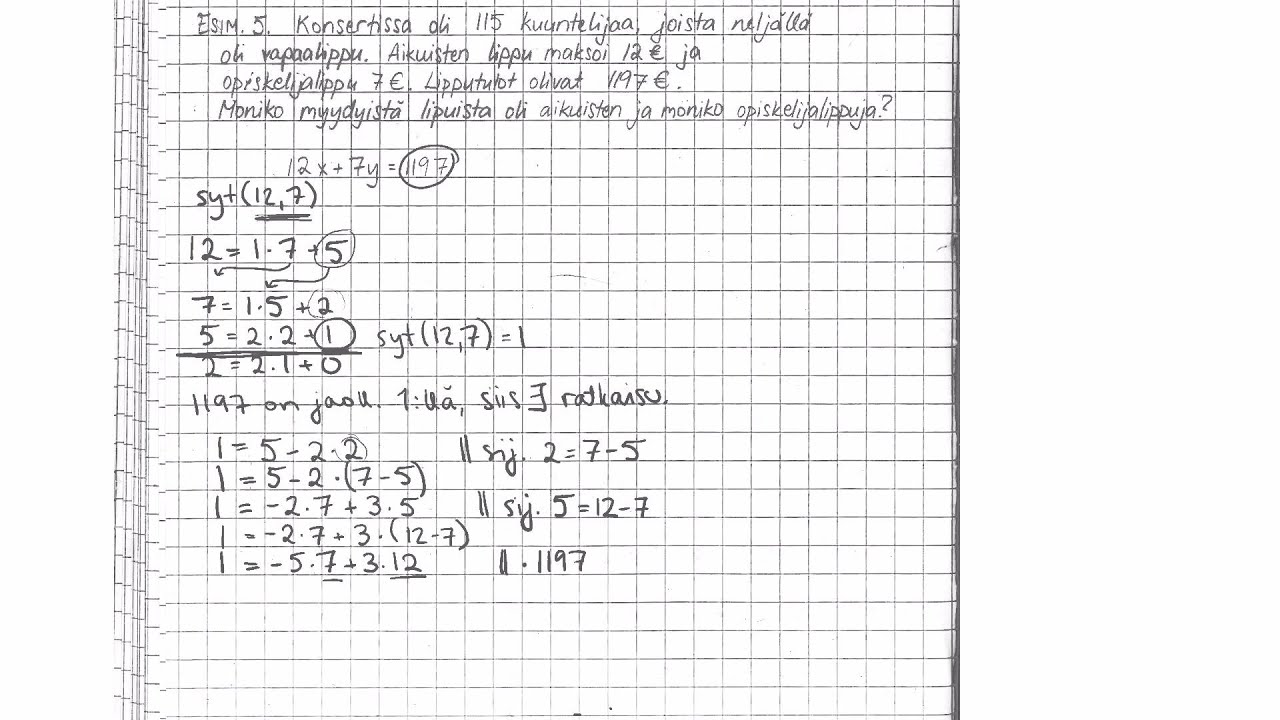 ESIM. 5. Konsertissa oli 115 kuuntelijaa, joista neljällä
oli vapaalippu. Aikuisten lippu maksoi 12 € ja
opiskelijalippu 7 €. Lipputulot olivat 1197 €.
Moniko myydyistä lipuista oli aikuisten ja moniko opiskelijalippuja?
12x + 7y = 1197
syt(12,7)
12 = 1·7 + 5
7 = 1·5 + 2
5 = 2·2 + 1 syt(12,7) = 1
2 = 2·1 + 0
1197 on jaoll. 1:llä, siis ∃ ratkaisu.
1 = 5 - 2·2 || sij. 2 = 7 - 5
1 = 5 - 2·(7 - 5)
1 = -2·7 + 3·5 || sij. 5 = 12 - 7
1 = -2·7 + 3·(12 - 7)
1 = -5·7 + 3·12 || · 1197